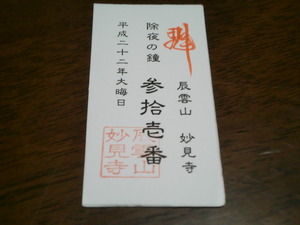 魁
辰雲山　妙見寺
除夜の鐘　参拾壱番
平成二十二年大晦日
辰雲山
妙見寺